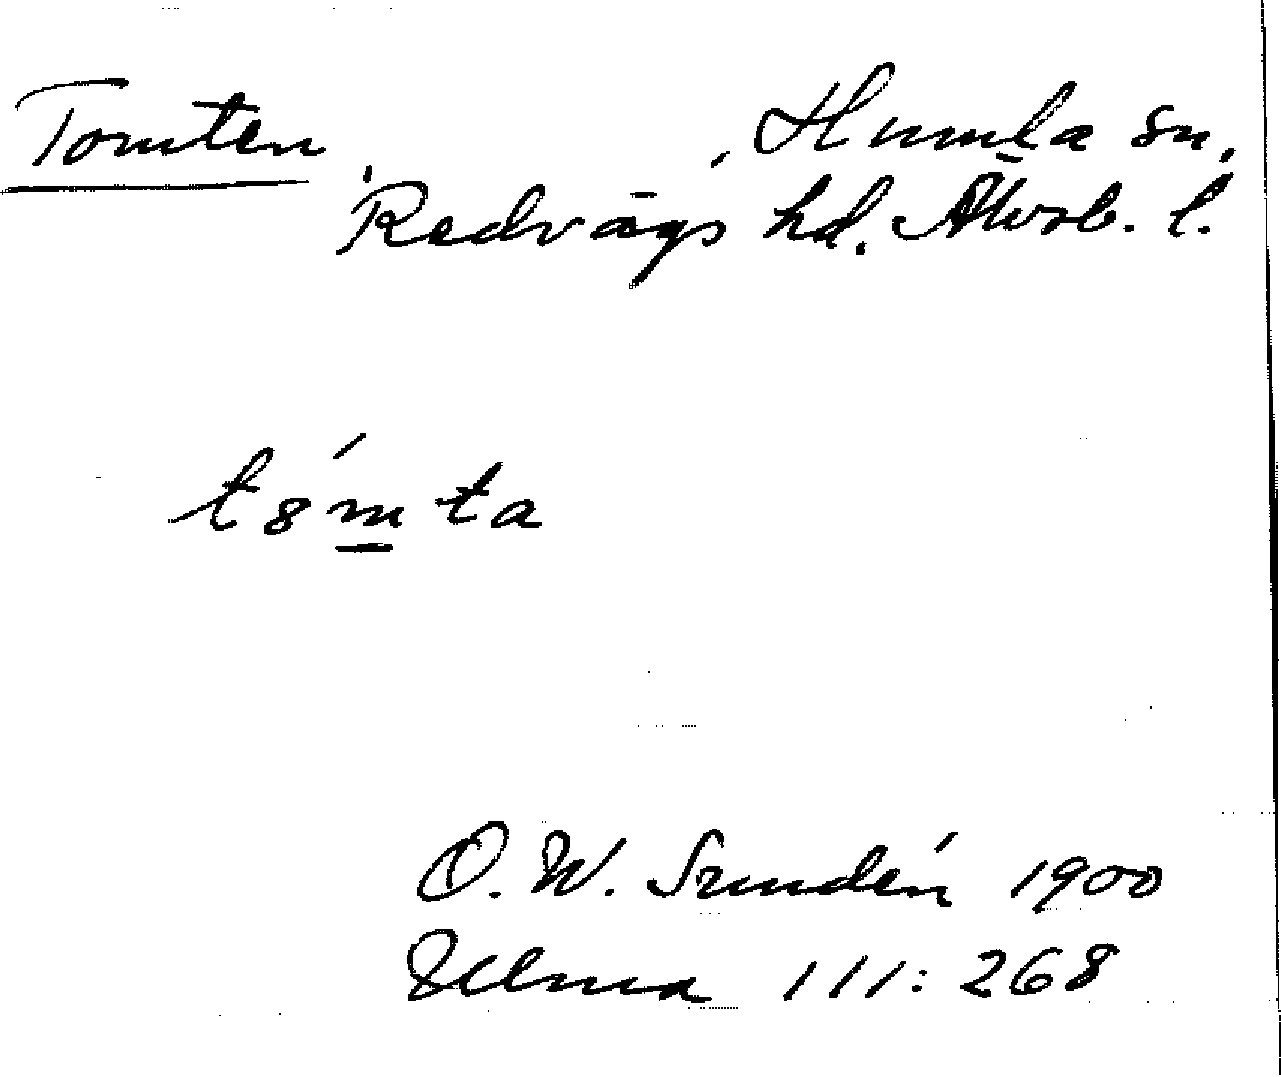 Tomten, Humla sn,
Redvägs hd. Älvsb. l.
t8ḿta
O. W. Sundén 1900
Ulma 111:268